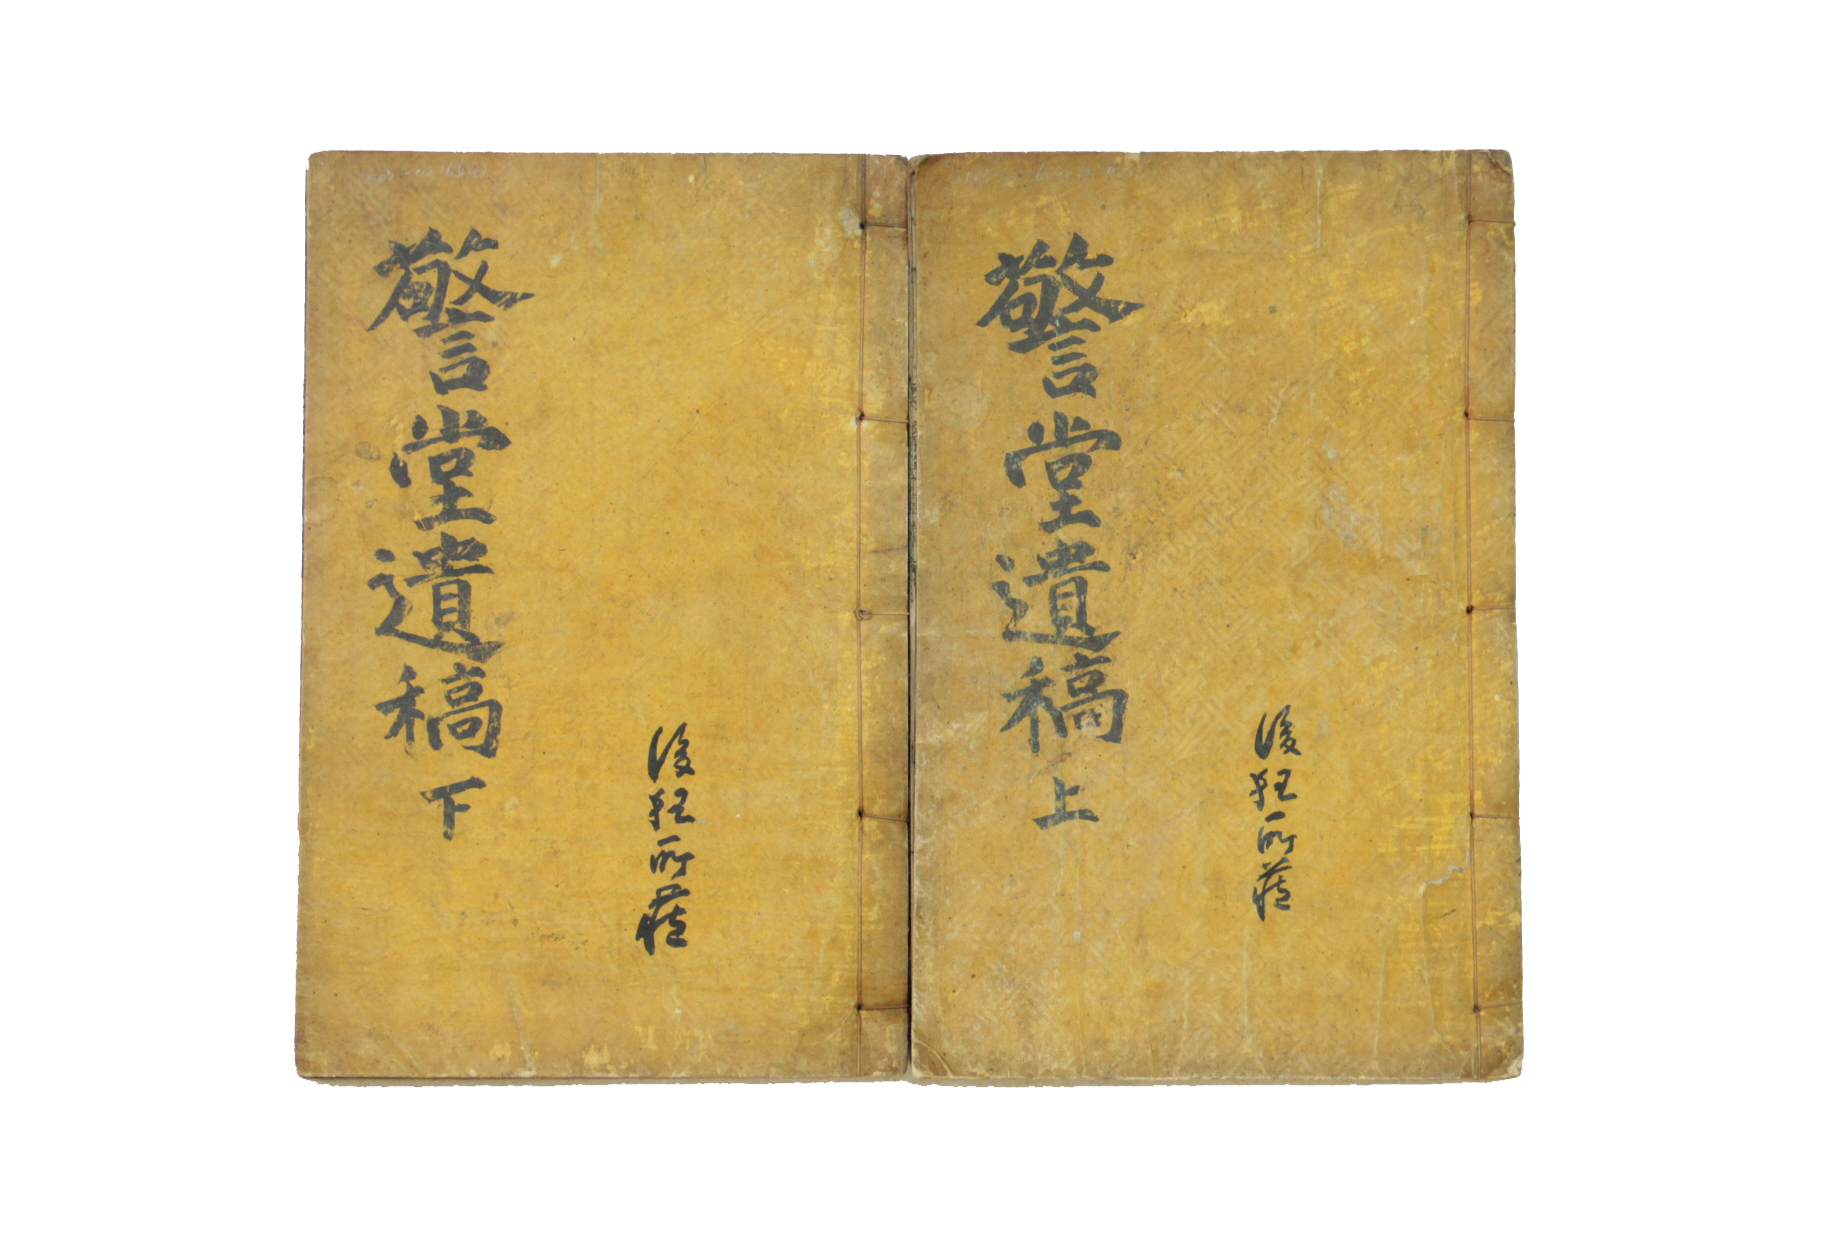 警堂遺稿 上
後狂所藏
警堂遺稿 下
後狂所藏